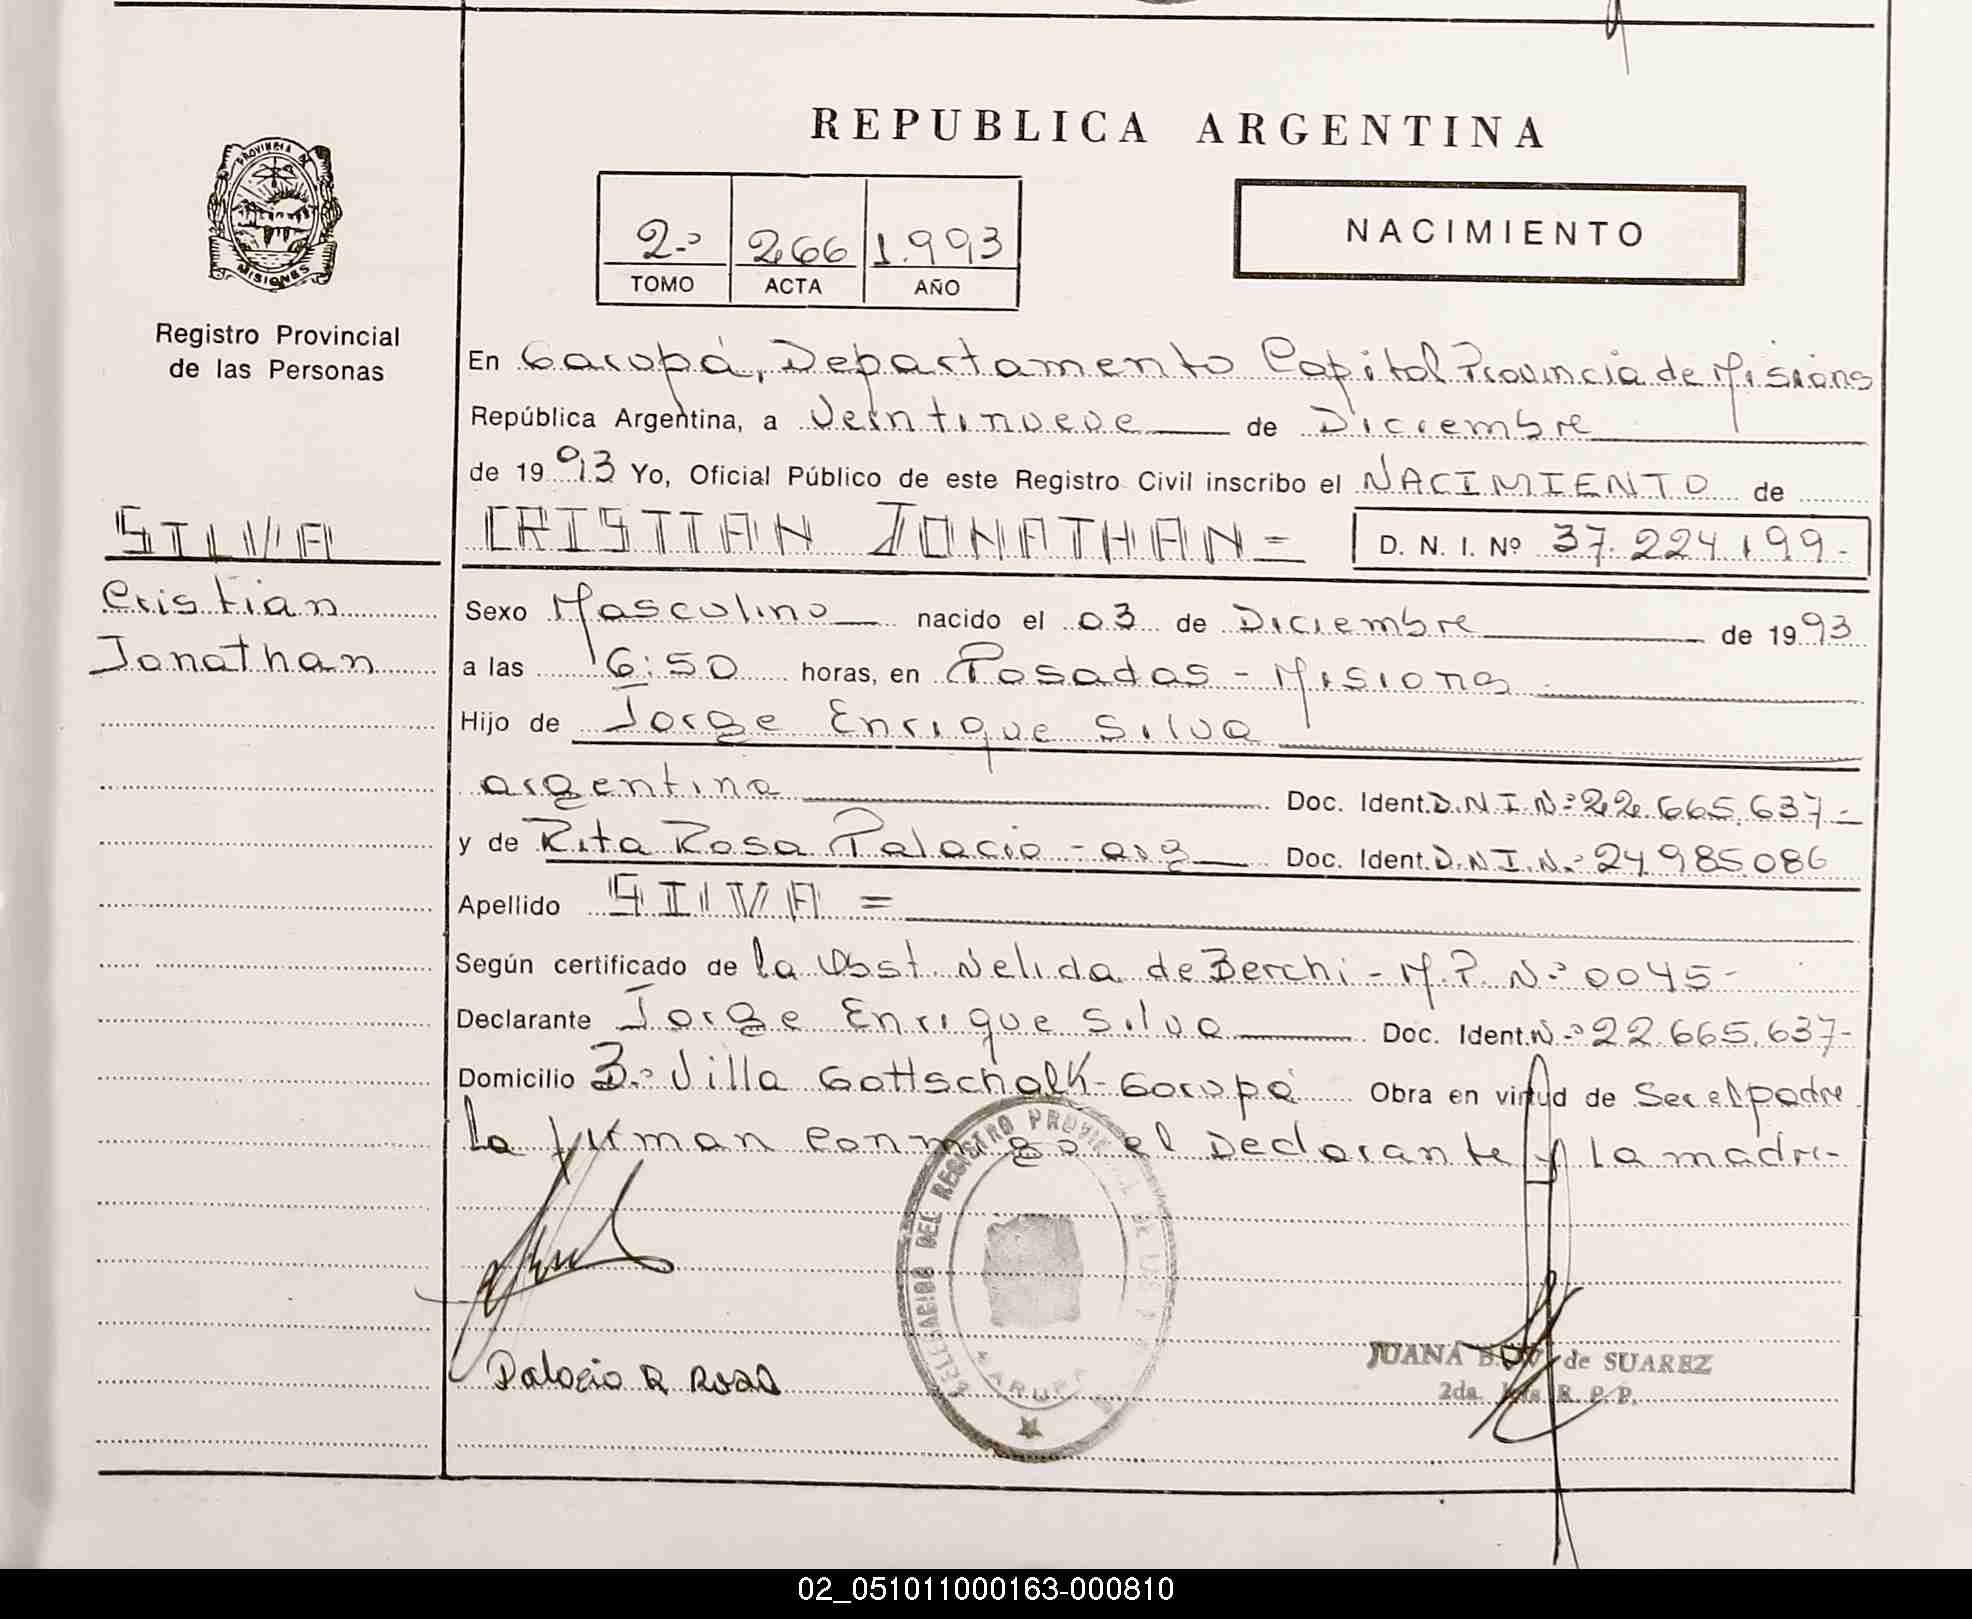 REPUBLICA ARGENTINA
PROVINCIA DE
MISIONES
Registro Provincial
de las Personas
2º 266 1.993
TOMO ACTA AÑO
NACIMIENTO
En Garupá, Departamento Capital Provincia de Misiones
República Argentina, a Veintinueve de Diciembre
de 1993 Yo, Oficial Público de este Registro Civil inscribo el NACIMIENTO de
SILVA
Cristian
Jonathan
CRISTIAN JONATHAN = D. N. I. Nº 37.224.199-
Sexo Masculino nacido el 03 de Diciembre de 1993
a las 6:50 horas, en Posadas - Misiones
Hijo de Jorge Enrique Silva
argentina Doc. Ident. D.N.I.Nº 22.665.637-
y de Rita Rosa Palacio - arg Doc. Ident. D.N.I.N.º 24.985.086
Apellido SILVA =
Según certificado de la Obst. Nelida de Berchi - M.P. Nº 0045-
Declarante Jorge Enrique Silva Doc. Ident. Nº 22.665.637-
Domicilio Bº Villa Gottschalk - Garupá Obra en virtud de Ser el padre
La firman conmigo el Declarante y la madre-
DELEGACION DEL REGISTRO PROVINCIAL DE LAS
GARUPA
Palacio R Rosa
JUANA de SUAREZ
2da. R. P. P.
02_051011000163-000810